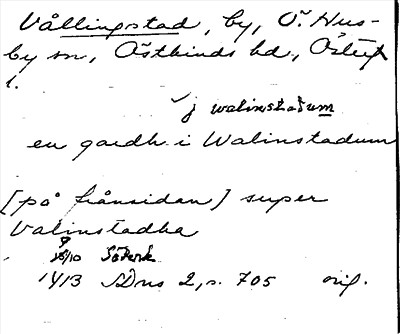 Vållingstad, by, Ö. Hus-
by sn, Östkinds hd, Östergötl
l.
j walinstadum
en gardh i Walinstadum
[på frånsidan] super
Valinstadha
18/10 Söderk
1413 SDns 2, s. 705 orig.